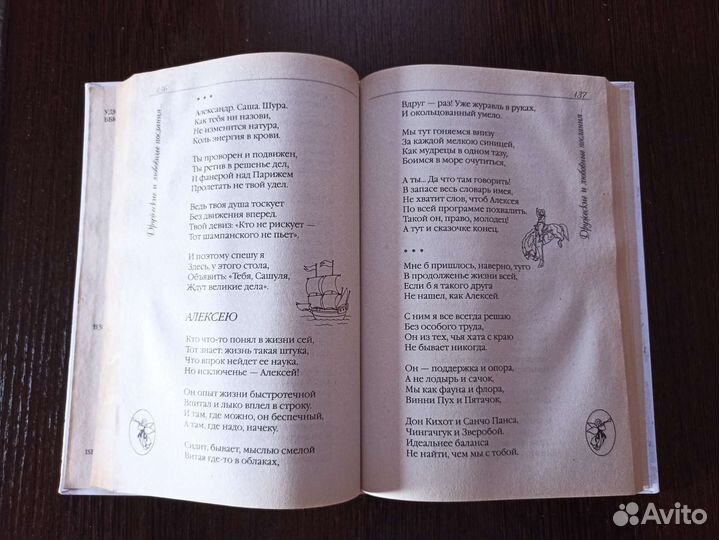 136
Дружеские и любовные послания
* * *
Александр. Саша. Шура.
Как тебя ни назови,
Не изменится натура,
Коль энергия в крови.
Ты проворен и подвижен,
Ты ретив в решенье дел,
И фанерой над Парижем
Пролетать не твой удел.
Ведь твоя душа тоскует
Без движения вперед.
Твой девиз: «Кто не рискует —
Тот шампанского не пьет».
И поэтому спешу я
Здесь, у этого стола,
Объявить: «Тебя, Сашуля,
Ждут великие дела».
АЛЕКСЕЮ
Кто что-то понял в жизни сей,
Тот знает: жизнь такая штука,
Что впрок нейдет ее наука,
Но исключенье — Алексей!
Он опыт жизни быстротечной
Впитал и лыко вплел в строку.
И там, где можно, он беспечный,
А там, где надо, начеку.
Сидит, бывает, мыслью смелой
Витая где-то в облаках,
137
Дружеские и любовные послания
Вдруг — раз! Уже журавль в руках,
И окольцованный умело.
Мы тут гоняемся внизу
За каждой мелкою синицей,
Как мудрецы в одном тазу,
Боимся в море очутиться,
А ты... Да что там говорить!
В запасе весь словарь имея,
Не хватит слов, чтоб Алексея
По всей программе похвалить.
Такой он, право, молодец!
А тут и сказочке конец.
* * *
Мне б пришлось, наверно, туго
В продолженье жизни всей,
Если б я такого друга
Не нашел, как Алексей.
С ним я все всегда решаю
Без особого труда,
Он из тех, чья хата с краю
Не бывает никогда.
Он — поддержка и опора,
А не лодырь и сачок,
Мы как фауна и флора,
Винни Пух и Пятачок,
Дон Кихот и Санчо Панса,
Чингачгук и Зверобой.
Идеальнее баланса
Не найти, чем мы с тобой.
Avito